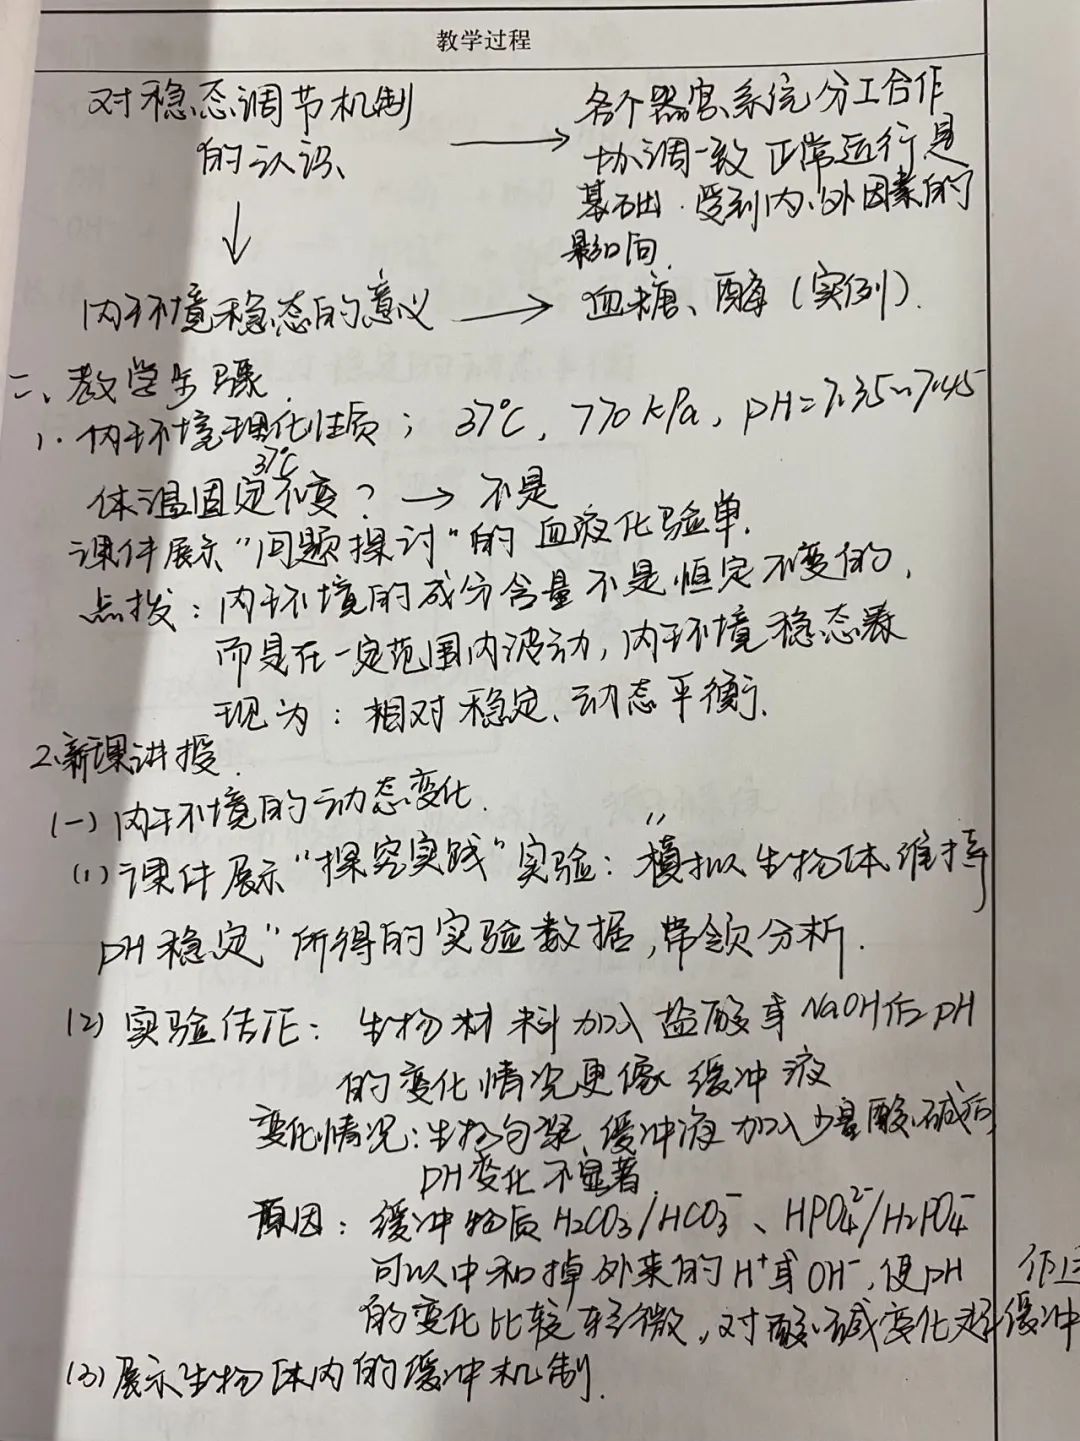 教学过程
对稳态调节机制
的认识
→ 各个器官系统分工合作
协调一致 正常运行是
基础.受到内、外因素的
影响
↓
内环境稳态的意义 → 血糖、酶(实例).
二、教学步骤.
1.内环境理化性质; 37℃, 770kPa, pH=7.35~7.45
37℃
体温固定不变? → 不是
课件展示"问题探讨"的血液化验单.
点拨:内环境的成分含量不是恒定不变的,
而是在一定范围内波动,内环境稳态表
现为:相对稳定、动态平衡.
2.新课讲授.
(一)内环境的动态变化.
(1)课件展示"探究实践"实验:"模拟生物体维持
pH稳定"所得的实验数据,带领分析.
(2)实验结论: 生物材料加入盐酸或NaOH后pH
的变化情况更像缓冲液
变化情况:生物匀浆、缓冲液加入少量酸、碱后
pH变化不显著.
原因:缓冲物质H₂CO₃/HCO₃⁻、HPO₄²⁻/H₂PO₄⁻
可以中和掉外来的H⁺或OH⁻,使pH
的变化比较轻微,对酸、碱变化起缓冲
作
(3)展示生物体内的缓冲机制.